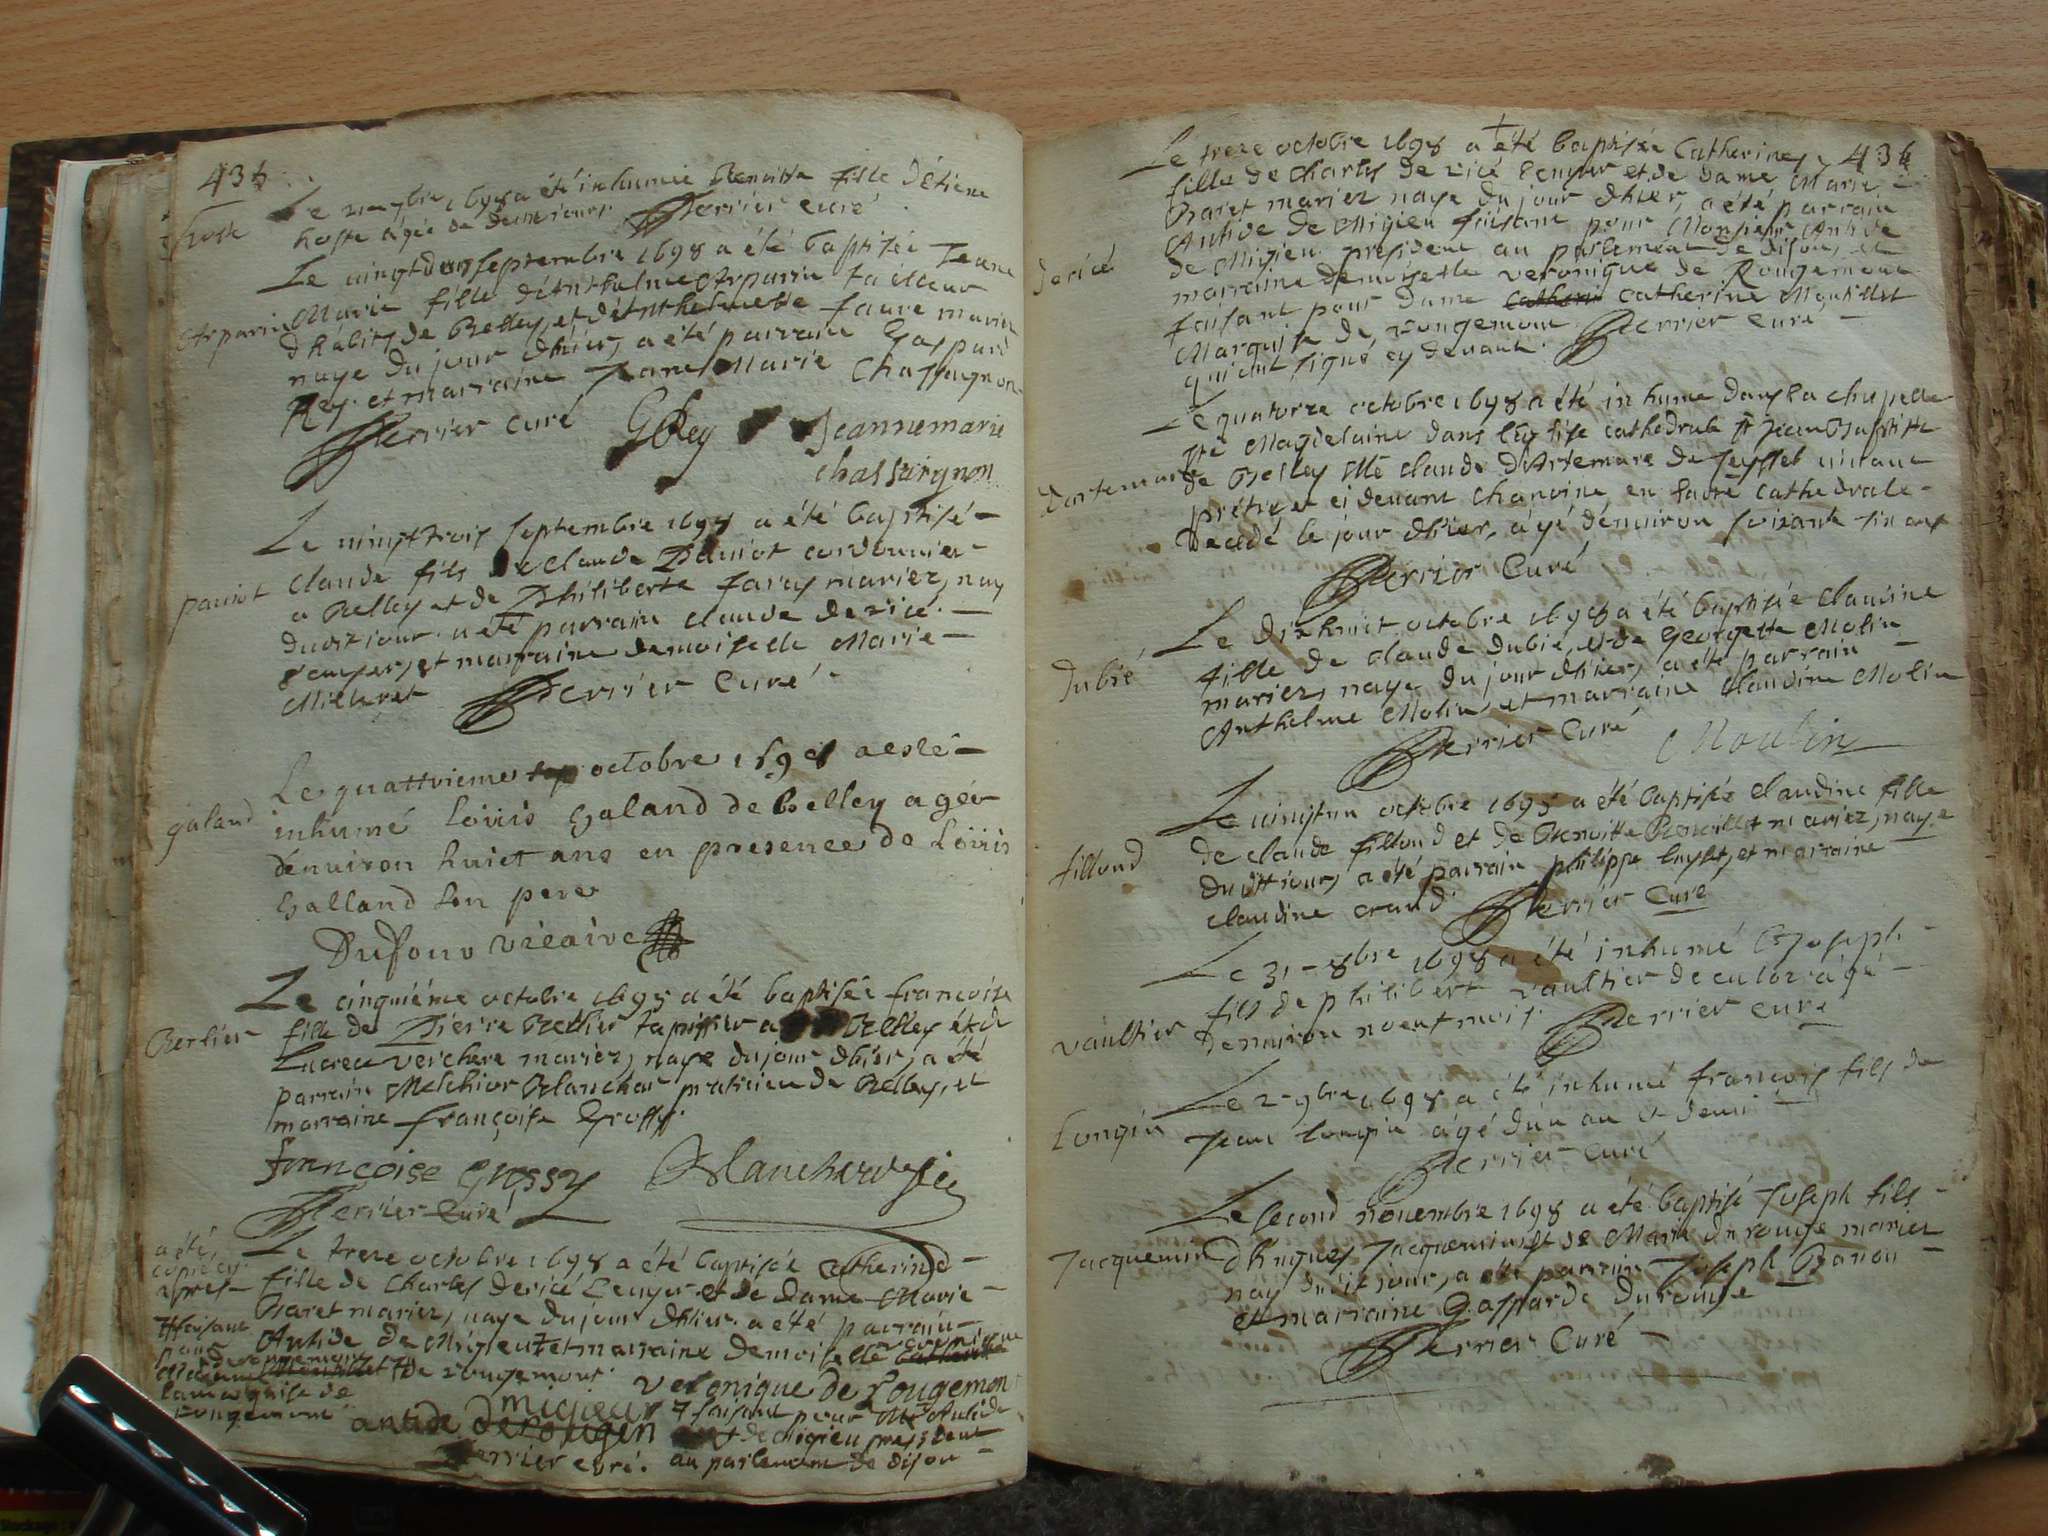 436
hoste
Le 9bre 1698 a été inhumée Benoitte fille d'étiene
hoste agée de demi jour. Perrier curé
Le uingtdeux septembre 1698 a été baptisée Jeane
Arparin Marie fille d'Anthelme Arparin tailleur
d'habits de Belley, et d'Anthelmette faure mariez
naye du jour d'hier, a été parrain Gaspard
Rey. et marraine Jane Marie Chassaignon
Perrier curé GRey Jeannemarie
chassaignon
Le uingt trois septembre 1698 a été baptisé
Claude fils de Claude Paniot cordonnier
paniot a Belley et de Philiberte farcy mariez, nay
dudit jour. a été parrain claude de ricé
Ecuyer, et marraine demoiselle Marie
Milleret Perrier Curé
Le quattrieme octobre 1698 a esté
galand inhumé Loüis Galand de belley agér
d'enuiron huict ans en presence de Loüis
Galland son pere
Dufour vicaire
Le cinquiéme octobre 1698 a été baptisée francoise
Berlier fille de Pierre Berlier tapissier a Belley et de
Lucrece verchere mariez, naye du jour d'hier, a été
parrain Melchior Blanchar praticien de Belley, et
marraine françoise Grossy.
francoise grossy Blanchard
Perrier Curé
Le treze octobre 1698 a été baptisée Catherine
a été
copié cy
apres
fille de Charles dericé Ecuyer et de dame Marie
Baret mariez, naye du jour d'hier. a été parrain
Antide de Migieu et marraine demoiselle veronique
de rougemont. veronique de Rougemon
faisant
pour
la marquise de
rougemont
migieu faisant pour Mr Antide
antide de migieu president
Perrier curé. au parlement de dijon
436
Le treze octobre 1698 a été baptisée Catherine,
fille de Charles de ricé Ecuyer et de dame Marie
Baret mariez naye du jour d'hier, a été parrain
Antide de Migieu faisant pour Monsieur Antide
dericé de Migieu president au parlement de dijon, et
marraine demoiselle veronique de Rougemont
faisant pour dame catherine Montillet
Marquise de rougemont Perrier Curé
qui ont signé cy devant.
Le quatorze octobre 1698 a été inhumé dans la chapelle
ste Magdelaine dans l'église cathedrale st Jean Baptiste
dartemare de Belley Mre claude d'Artemare de seyssel uiuant
prétre et ci deuant chanoine en ladite cathedrale
decedé le jour d'hier, agé d'enuiron soixante six ans
Perrier Curé
Le dixhuit octobre 1698 a été baptisée claudine
dubié fille de claude dubié, et de Georgette Molin
mariez, naye du jour d'hier, a été parrain
Anthelme Molin et marraine claudine Molin
Perrier Curé Moulin
Le uingtun octobre 1698 a été baptisée claudine fille
fillond de claude fillond et de Benoitte mariez, naye
dudit jour, a été parrain philippe et marraine
claudine craud. Perrier Curé
Le 31 8bre 1698 a été inhumé Joseph
fils de philibert vaultier de culoz agé
vaultier d'enuiron neuf mois. Perrier curé
Le 2 9bre 1698 a été inhumé francois fils de
Longin Jean Longin agé d'un an & demi
Perrier Curé
Le second nouembre 1698 a été baptisé Joseph fils
Jacquemin d'hugues Jacquemin et de Marie du rouge mariez
nay dudit jour, a été parrain Joseph
et marraine Gasparde du rouge
Perrier Curé